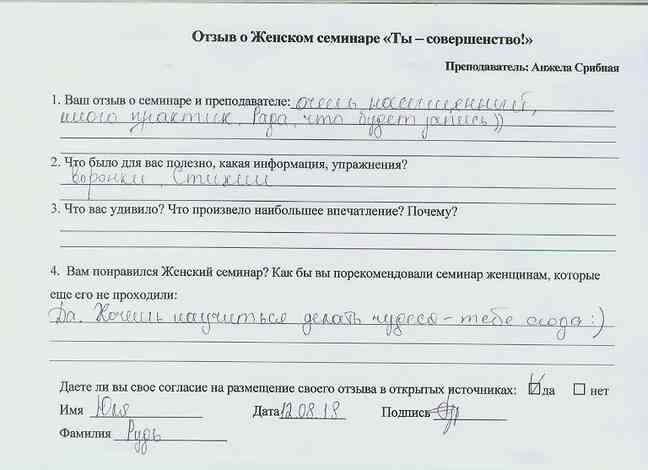 Отзыв о Женском семинаре «Ты – совершенство!»
Преподаватель: Анжела Срибная
1. Ваш отзыв о семинаре и преподавателе: очень насыщенный,
много практик. Рада, что будет запись))
2. Что было для вас полезно, какая информация, упражнения?
Воронки, Стихии
3. Что вас удивило? Что произвело наибольшее впечатление? Почему?
4. Вам понравился Женский семинар? Как бы вы порекомендовали семинар женщинам, которые
еще его не проходили:
Да. Хочешь научиться делать чудеса – тебе сюда :)
Даете ли вы свое согласие на размещение своего отзыва в открытых источниках: да нет
Имя Юля Дата 12.08.18 Подпись
Фамилия Рудь